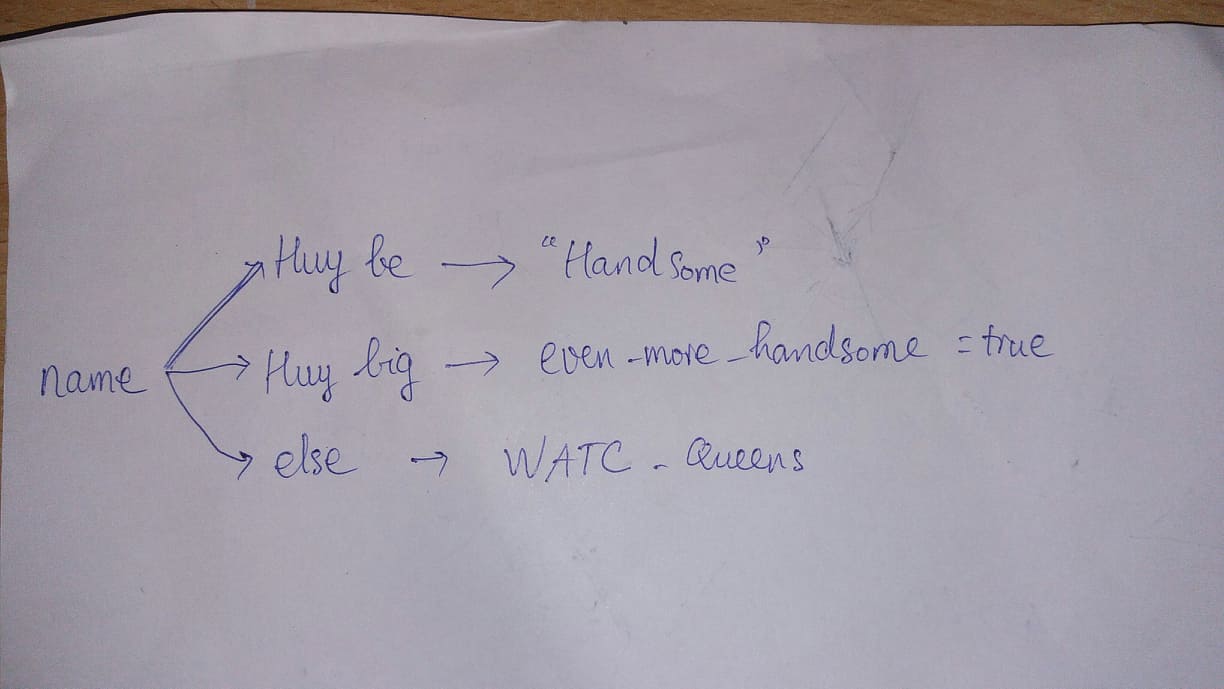 Huy be → “Handsome”
name → Huy big → even-more-handsome = true
else → WATC - Queens